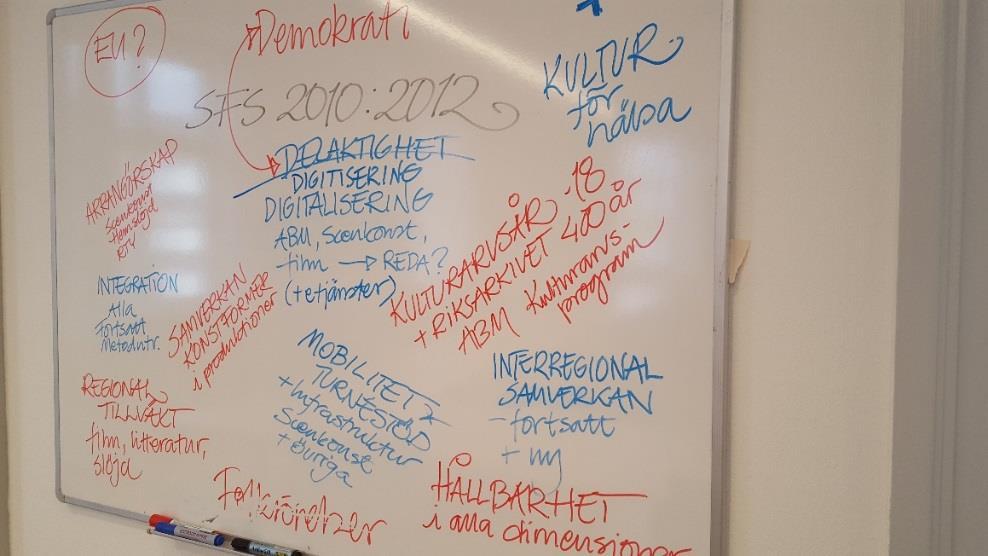 EU?
Demokrati
SFS 2010:2012
KULTUR
för
hälsa
DELAKTIGHET
DIGITISERING
DIGITALISERING
ABM, Scenkonst,
film → REDA?
(+etjänster)
ARRANGÖRSKAP
Scenkonst
Hemslöjd
RTY
KULTURARVSÅR .18
+ RIKSARKIVET 400 år
ABM Kulturarvs-
program
INTEGRATION
Alla
Fortsatt
Metodutv.
SAMVERKAN
KONSTFORMER
i produktioner
REGIONAL
TILLVÄXT
film, litteratur,
slöjd
MOBILITET
TURNÉSTÖD
+ Infrastruktur
Scenkonst
+ övriga
INTERREGIONAL
SAMVERKAN
- fortsatt
+ ny
HÅLLBARHET
i alla dimensioner